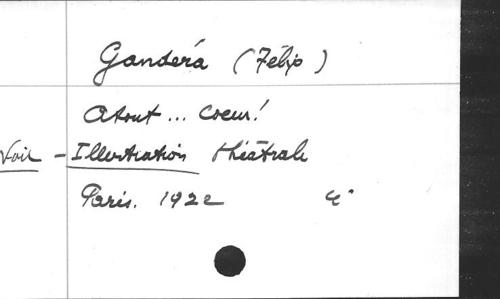 Gandéra (Félip)
Atout... Coeur!
Voir - Illustration théâtrale
Paris. 1922 4°